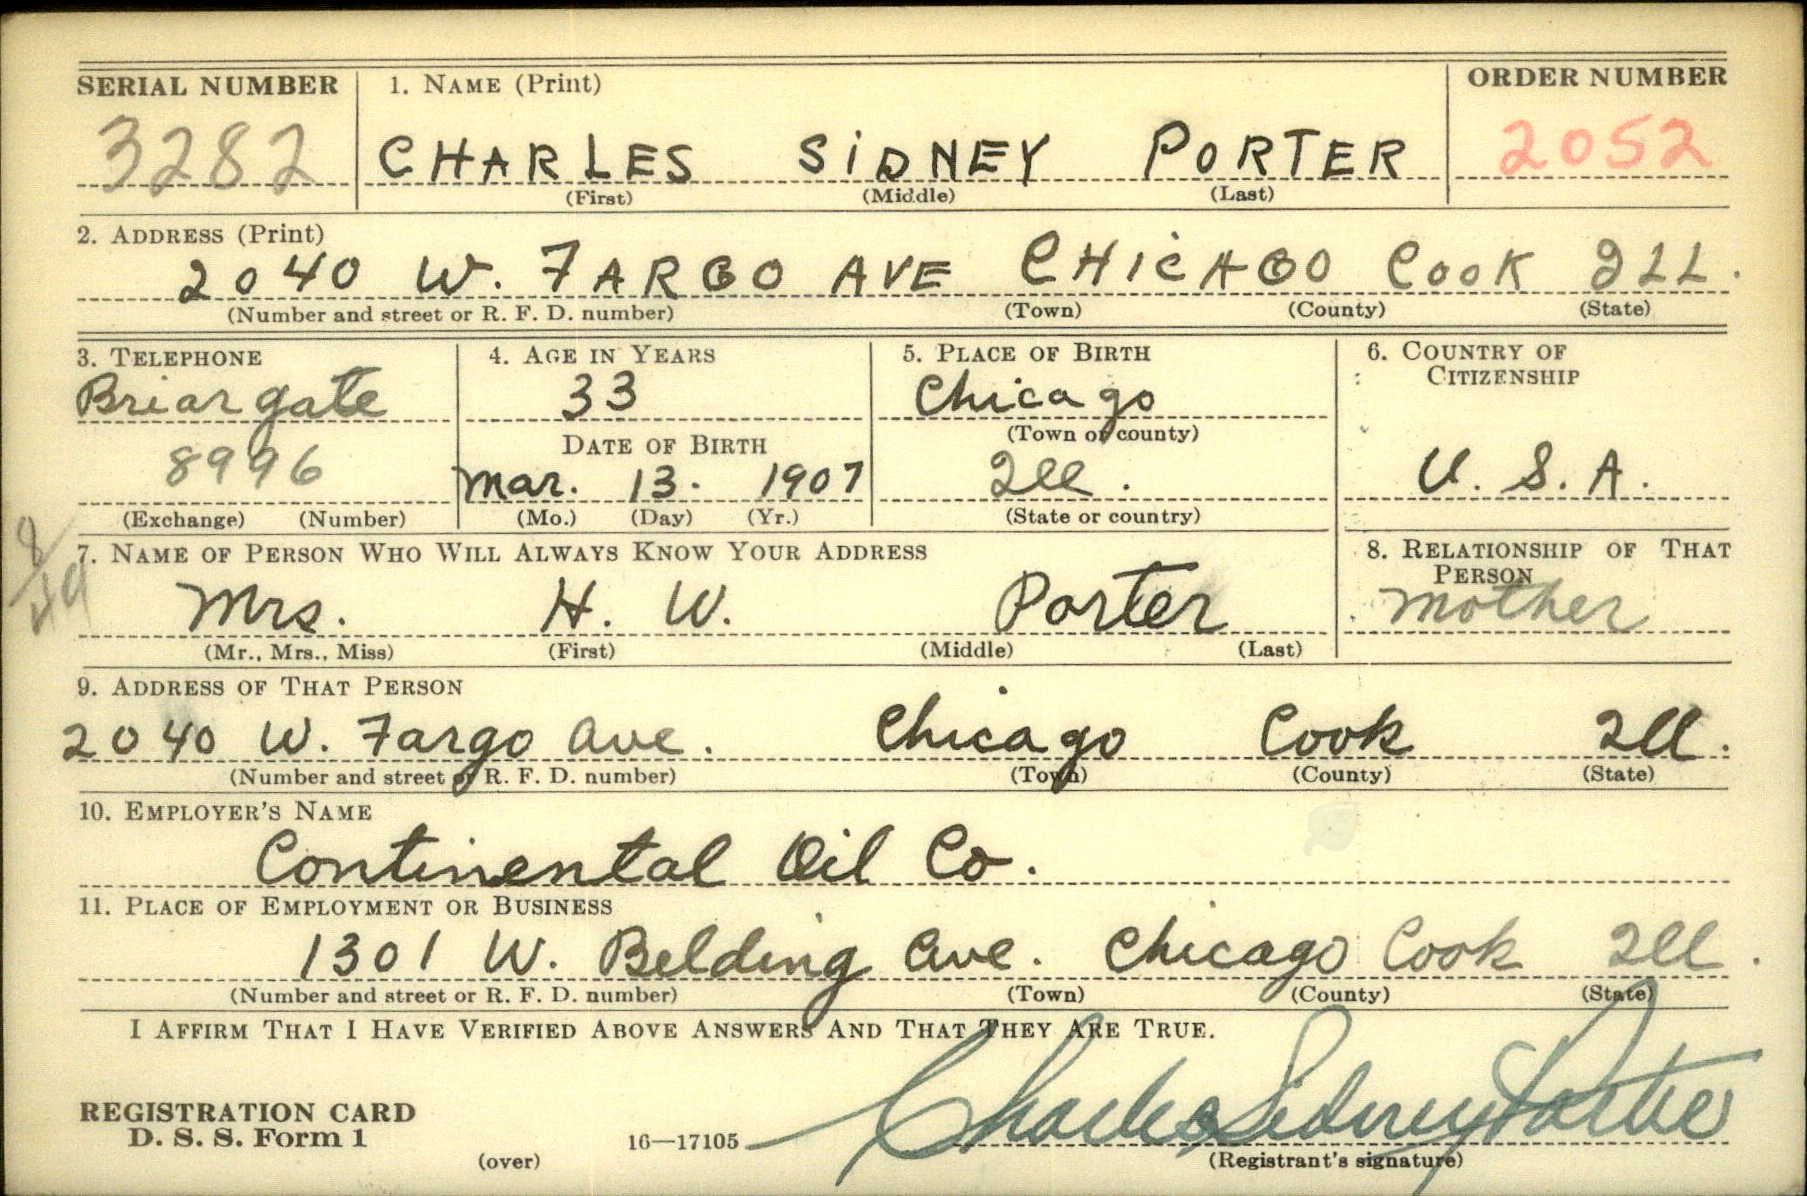 SERIAL NUMBER 1. NAME (Print) ORDER NUMBER
3282 CHARLES SIDNEY PORTER 2052
(First) (Middle) (Last)
2. ADDRESS (Print)
2040 W. FARGO AVE CHICAGO COOK ILL.
(Number and street or R. F. D. number) (Town) (County) (State)
3. TELEPHONE 4. AGE IN YEARS 5. PLACE OF BIRTH 6. COUNTRY OF
CITIZENSHIP
Briargate 33 Chicago
DATE OF BIRTH (Town or county)
8996 Mar. 13. 1907 Ill. U. S. A.
(Exchange) (Number) (Mo.) (Day) (Yr.) (State or country)
7. NAME OF PERSON WHO WILL ALWAYS KNOW YOUR ADDRESS 8. RELATIONSHIP OF THAT
PERSON
Mrs. H. W. Porter mother
(Mr., Mrs., Miss) (First) (Middle) (Last)
9. ADDRESS OF THAT PERSON
2040 W. Fargo Ave. Chicago Cook Ill.
(Number and street or R. F. D. number) (Town) (County) (State)
10. EMPLOYER'S NAME
Continental Oil Co.
11. PLACE OF EMPLOYMENT OR BUSINESS
1301 W. Belding Ave. Chicago Cook Ill.
(Number and street or R. F. D. number) (Town) (County) (State)
I AFFIRM THAT I HAVE VERIFIED ABOVE ANSWERS AND THAT THEY ARE TRUE.
Charles Sidney Porter
REGISTRATION CARD
D. S. S. Form 1 16—17105
(over) (Registrant's signature)